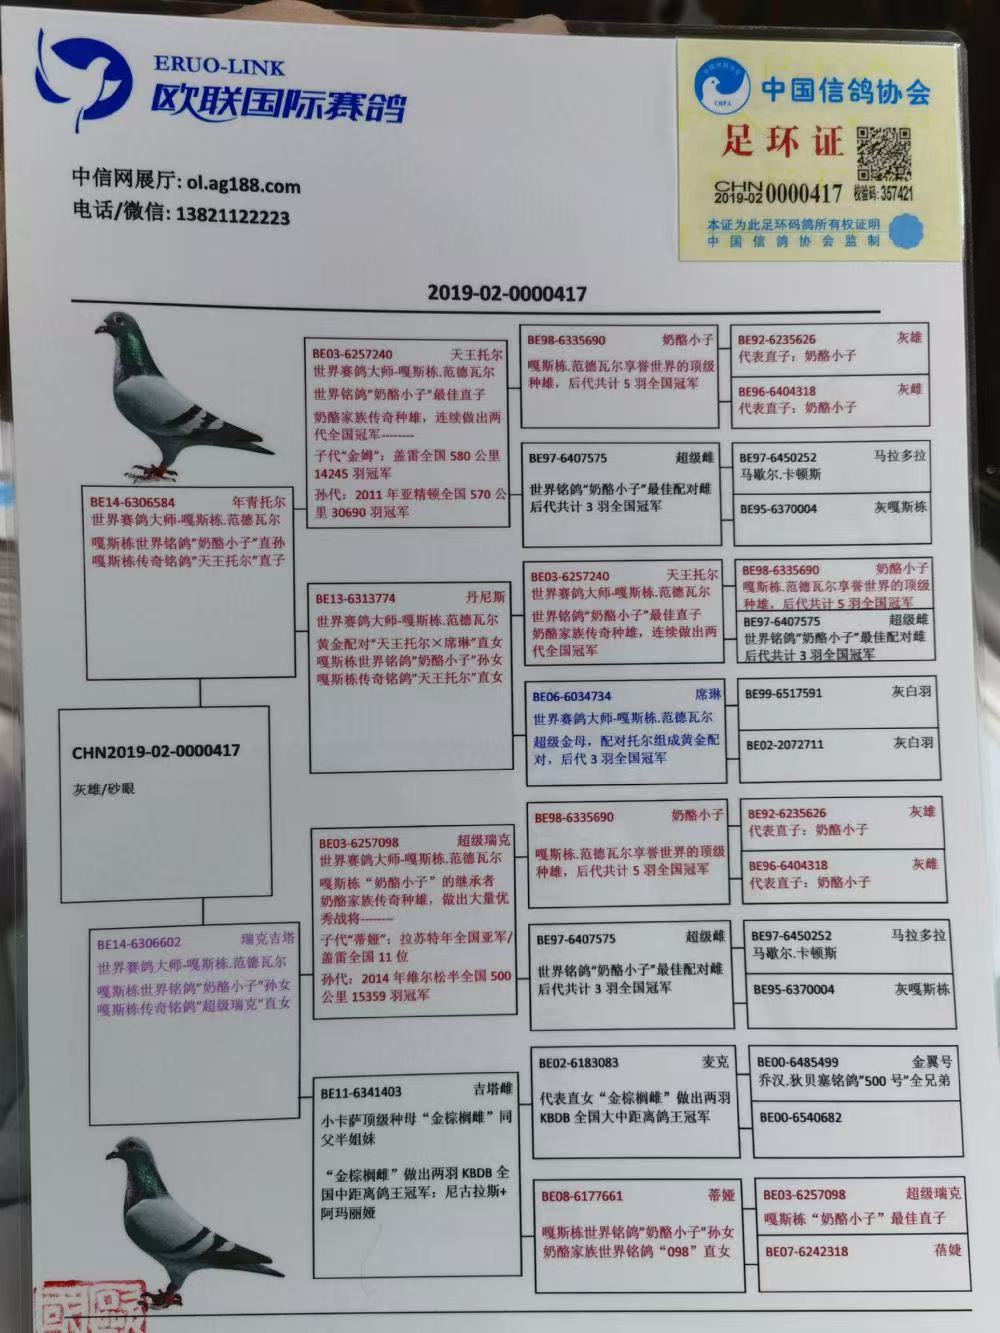 ERUO-LINK
欧联国际赛鸽
中信网展厅: ol.ag188.com
电话/微信: 13821122223
CHPA
中国信鸽协会
足环证
CHN
2019-02 0000417 校验码:357421
本证为此足环码鸽所有权证明
中国信鸽协会监制
2019-02-0000417
BE14-6306584 年青托尔
世界赛鸽大师-嘎斯栋.范德瓦尔
嘎斯栋世界铭鸽"奶酪小子"直孙
嘎斯栋传奇铭鸽"天王托尔"直子
CHN2019-02-0000417
灰雄/砂眼
BE14-6306602 瑞克吉塔
世界赛鸽大师-嘎斯栋.范德瓦尔
嘎斯栋世界铭鸽"奶酪小子"孙女
嘎斯栋传奇铭鸽"超级瑞克"直女
BE03-6257240 天王托尔
世界赛鸽大师-嘎斯栋.范德瓦尔
世界铭鸽"奶酪小子"最佳直子
奶酪家族传奇种雄，连续做出两
代全国冠军--------
子代"金姆"：盖雷全国 580 公里
14245 羽冠军
孙代：2011 年亚精顿全国 570 公
里 30690 羽冠军
BE13-6313774 丹尼斯
世界赛鸽大师-嘎斯栋.范德瓦尔
黄金配对"天王托尔×席琳"直女
嘎斯栋世界铭鸽"奶酪小子"孙女
嘎斯栋传奇铭鸽"天王托尔"直女
BE03-6257098 超级瑞克
世界赛鸽大师-嘎斯栋.范德瓦尔
嘎斯栋“奶酪小子”的继承者
奶酪家族传奇种雄，做出大量优
秀战将--------
子代"蒂娅"：拉苏特年全国亚军/
盖雷全国 11 位
孙代：2014 年维尔松半全国 500
公里 15359 羽冠军
BE11-6341403 吉塔雌
小卡萨顶级种母“金棕榈雌”同
父半姐妹
“金棕榈雌”做出两羽 KBDB 全
国中距离鸽王冠军：尼古拉斯+
阿玛丽娅
BE98-6335690 奶酪小子
嘎斯栋.范德瓦尔享誉世界的顶级
种雄，后代共计 5 羽全国冠军
BE97-6407575 超级雌
世界铭鸽"奶酪小子"最佳配对雌
后代共计 3 羽全国冠军
BE03-6257240 天王托尔
世界赛鸽大师-嘎斯栋.范德瓦尔
世界铭鸽"奶酪小子"最佳直子
奶酪家族传奇种雄，连续做出两
代全国冠军
BE06-6034734 席琳
世界赛鸽大师-嘎斯栋.范德瓦尔
超级金母，配对托尔组成黄金配
对，后代 3 羽全国冠军
BE98-6335690 奶酪小子
嘎斯栋.范德瓦尔享誉世界的顶级
种雄，后代共计 5 羽全国冠军
BE97-6407575 超级雌
世界铭鸽"奶酪小子"最佳配对雌
后代共计 3 羽全国冠军
BE02-6183083 麦克
代表直女“金棕榈雌”做出两羽
KBDB 全国大中距离鸽王冠军
BE08-6177661 蒂娅
嘎斯栋世界铭鸽"奶酪小子"孙女
奶酪家族世界铭鸽“098”直女
BE92-6235626 灰雄
代表直子：奶酪小子
BE96-6404318 灰雌
代表直子：奶酪小子
BE97-6450252 马拉多拉
马歇尔.卡顿斯
BE95-6370004 灰嘎斯栋
BE98-6335690 奶酪小子
嘎斯栋.范德瓦尔享誉世界的顶级
种雄，后代共计 5 羽全国冠军
BE97-6407575 超级雌
世界铭鸽"奶酪小子"最佳配对雌
后代共计 3 羽全国冠军
BE99-6517591 灰白羽
BE02-2072711 灰白羽
BE92-6235626 灰雄
代表直子：奶酪小子
BE96-6404318 灰雌
代表直子：奶酪小子
BE97-6450252 马拉多拉
马歇尔.卡顿斯
BE95-6370004 灰嘎斯栋
BE00-6485499 金翼号
乔汉.狄贝塞铭鸽"500 号"全兄弟
BE00-6540682
BE03-6257098 超级瑞克
嘎斯栋“奶酪小子”最佳直子
BE07-6242318 蓓婕